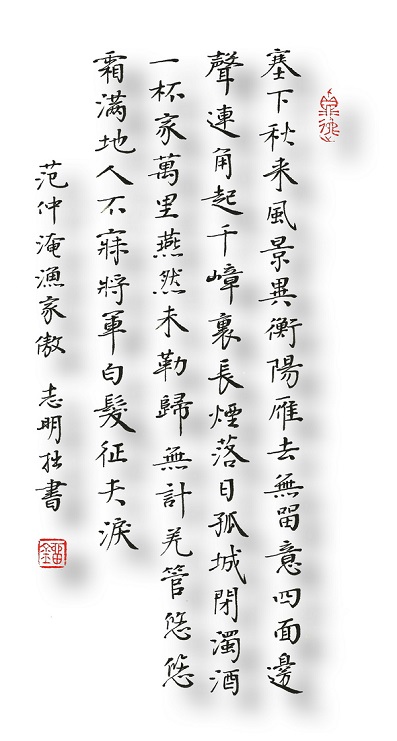 塞下秋来風景異衡陽雁去無留意四面邊
聲連角起千嶂裏長煙落日孤城閉濁酒
一杯家萬里燕然未勒歸無計羌管悠悠
霜滿地人不寐將軍白髮征夫淚
范仲淹漁家傲 志明拙書